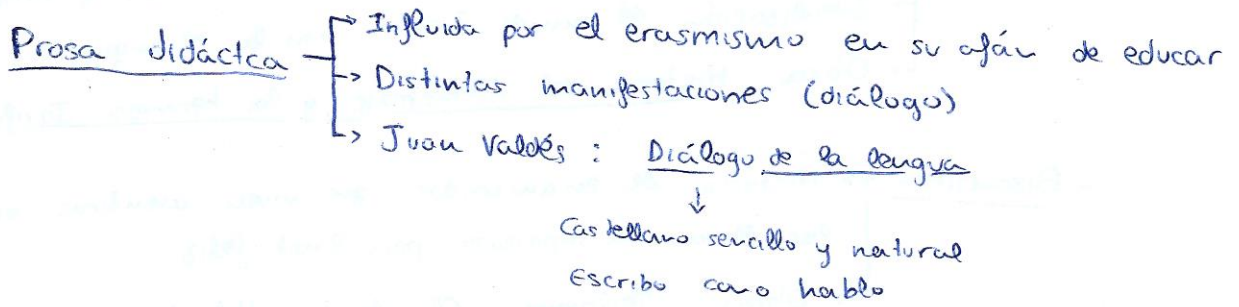 Influida por el erasmismo en su afán de educar
Prosa didáctca
Distintas manifestaciones (diálogo)
Juan Valdés : Diálogo de la lengua
Castellano sencillo y natural
Escribo como hablo